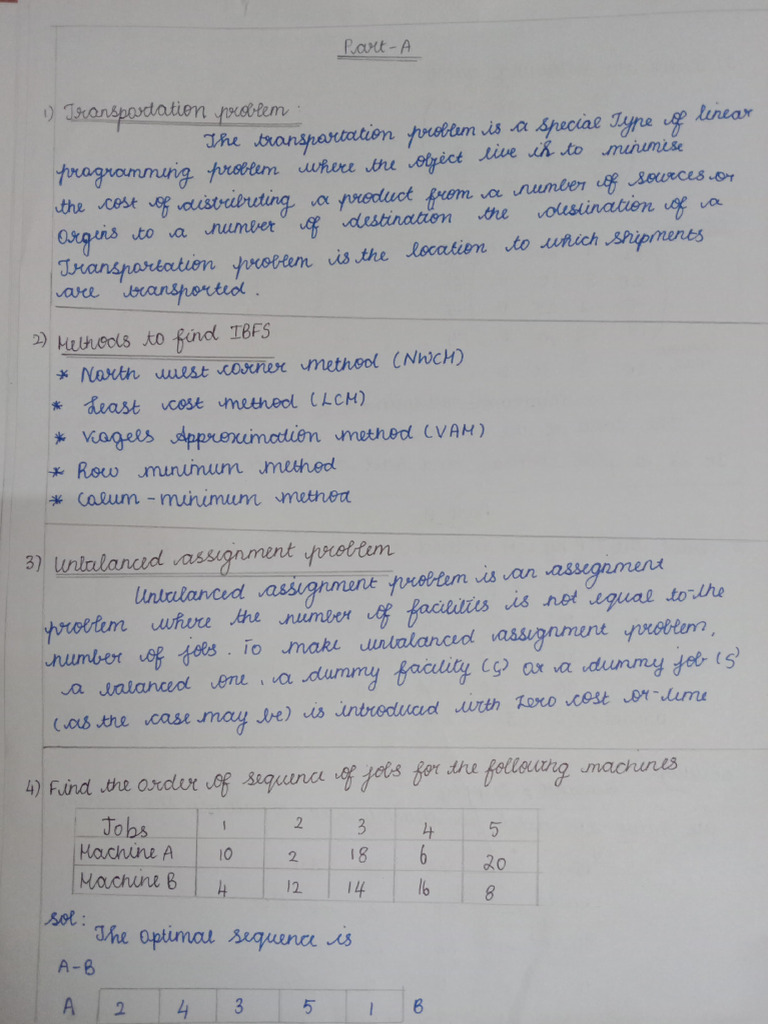 Part-A
1) Transportation problem:
The transportation problem is a special Type of linear
programming problem where the object live is to minimise
the cost of distributing a product from a number of sources or
orgens to a number of destination the destination of a
Transportation problem is the location to which shipments
are transported.
2) Methods to find IBFS
* North west corner method (NWCM)
* Least cost method (LCM)
* Vogels Approximation method (VAM)
* Row minimum method
* Colum-minimum method
3) Unbalanced assignment problem
Unbalanced assignment problem is an assegnment
problem where the number of facilities is not equal to-the
number of jobs. To make unbalanced assignment problem,
a balanced one, a dummy facility (s) or a dummy job (s)
(as the case may be) is introduced with zero cost or-time
4) Find the order of sequence of jobs for the following machines
Jobs 1 2 3 4 5
Machine A 10 2 18 6 20
Machine B 4 12 14 16 8
sol:
The optimal sequence is
A-B
A 2 4 3 5 1 B